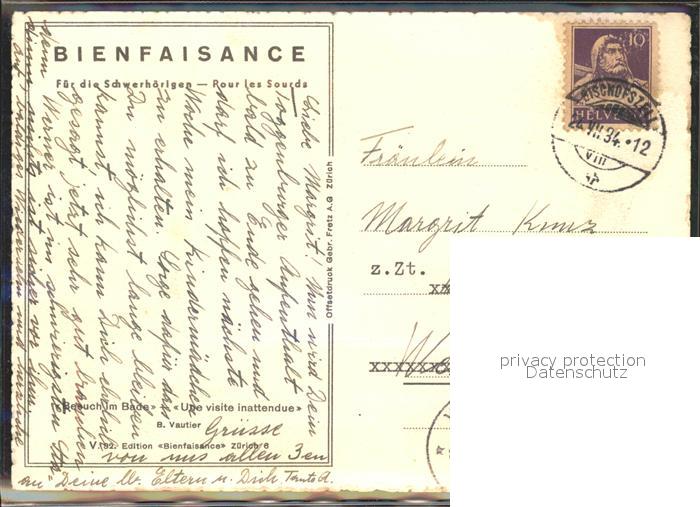 BIENFAISANCE
Für die Schwerhörigen — Pour les Sourds
Liebe Margrit! Nun wird Dein
Toggenburger Aufenthalt
bald zu Ende gehen und
darf ich hoffen nächste
Woche mein Kindermädchen
zu erhalten. Sorge dafür dass
Du möglichst lange bleiben
kannst, ich kann Dich ehrlich
gesagt jetzt sehr gut brauchen
Werner ist im schwierigsten
wenn
auf
Grüsse
von uns allen 3en
an Deine lb. Eltern u. Dich Tante A.
«Besuch im Bade» — «Une visite inattendue»
B. Vautier
V. 32. Edition «Bienfaisance» Zürich 6
Offsetdruck Gebr. Fretz A.G. Zürich
10
HELVETIA
BISCHOFSZELL
24.VII.34.•12
VIII
Fräulein
Margrit Kunz
z.Zt.
privacy protection
Datenschutz